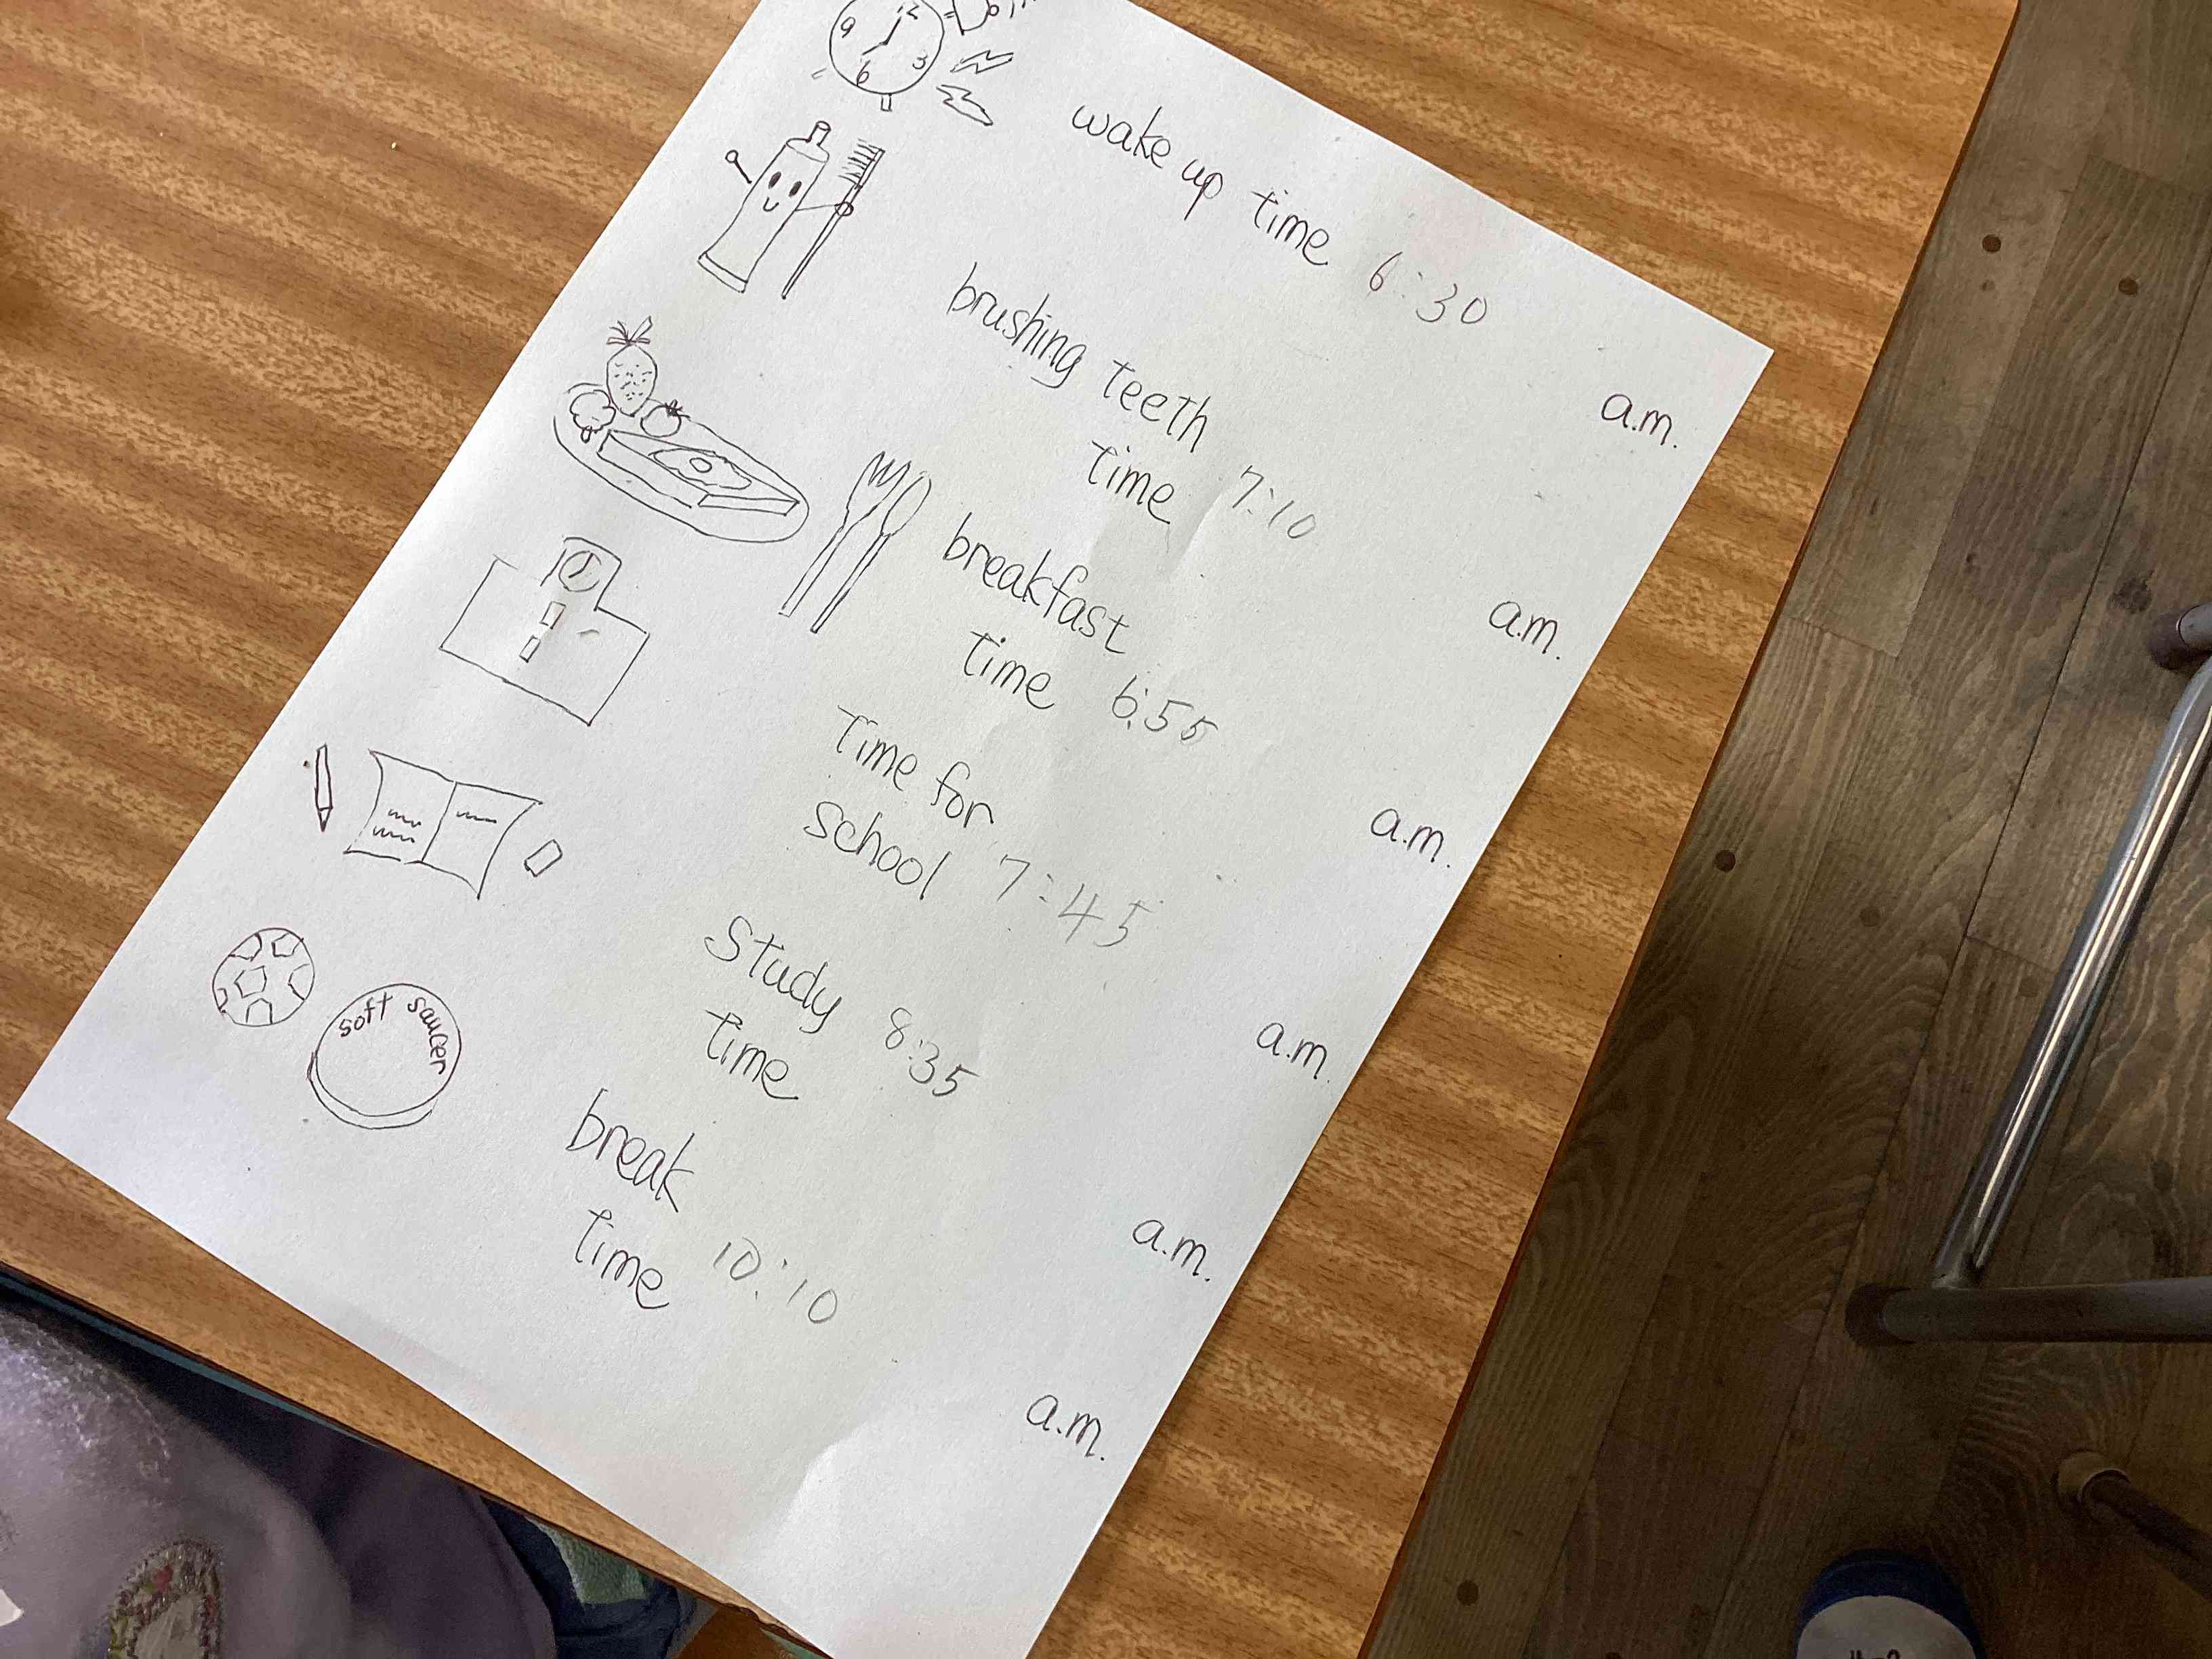 12
9
3
6
wake up time 6:30 a.m.
brushing teeth
time 7:10 a.m.
breakfast
time 6:55 a.m.
Time for
school 7:45 a.m.
Study 8:35
time a.m.
soft saucer
break
time 10:10 a.m.